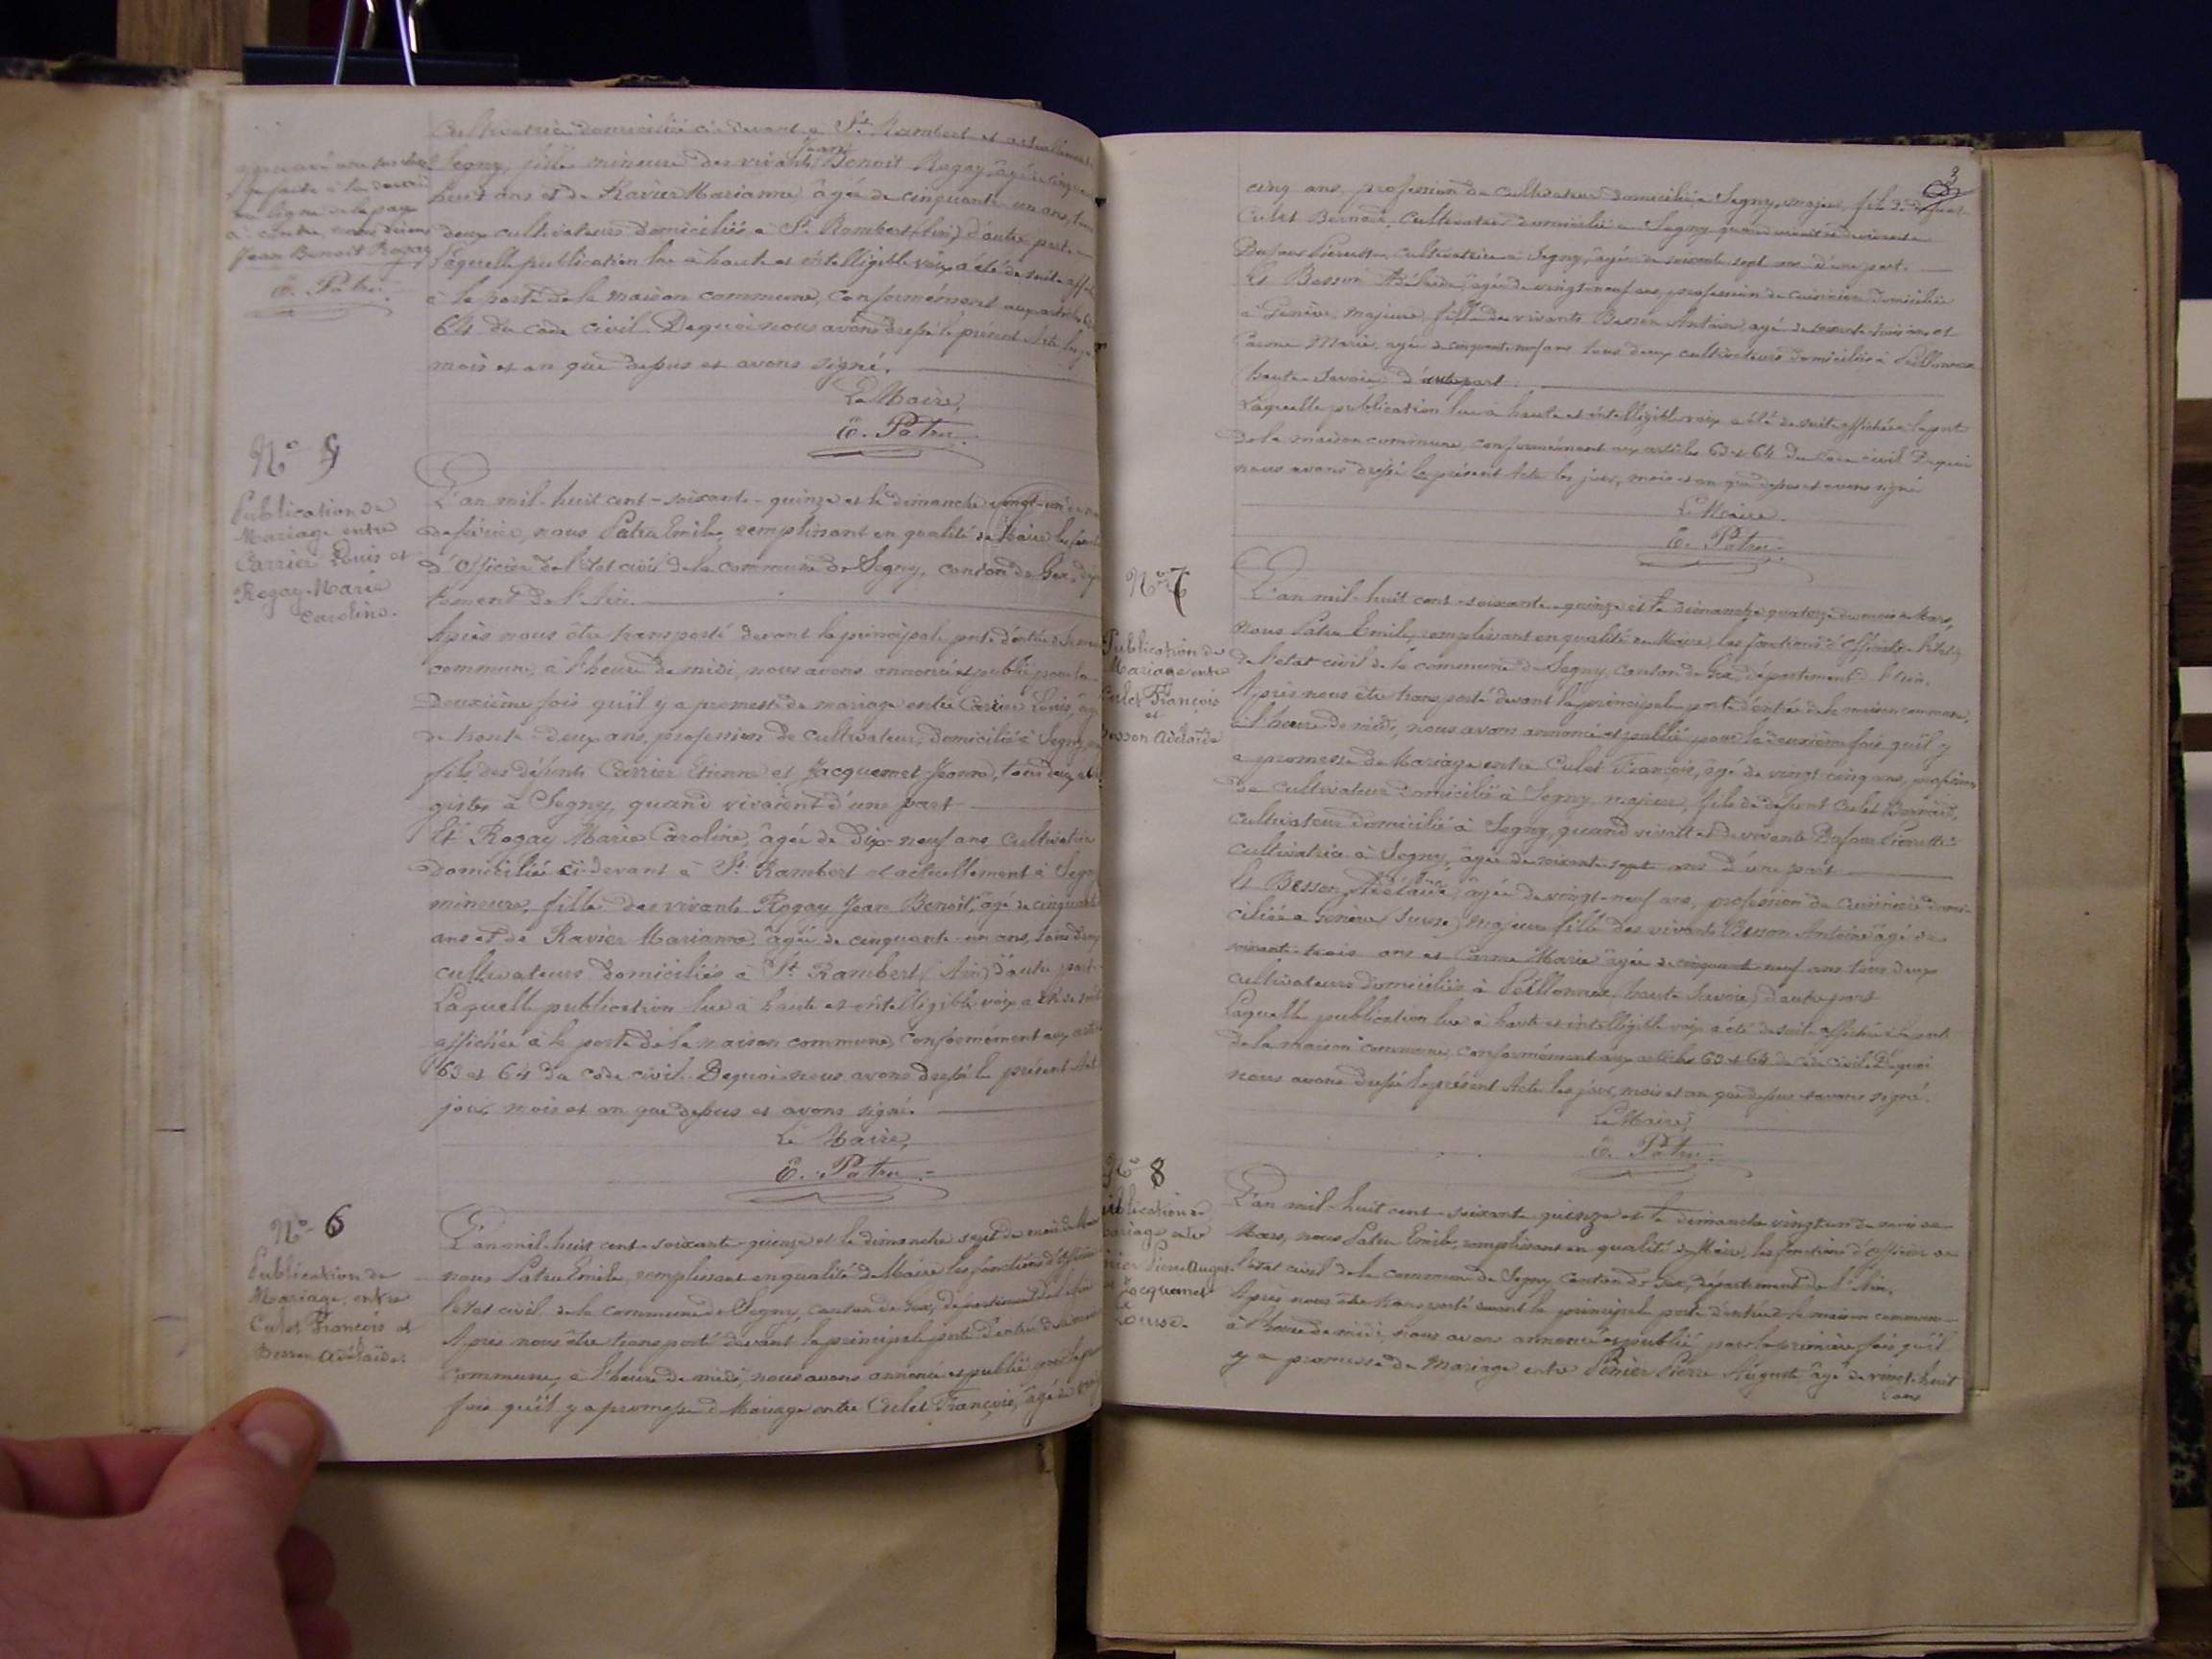 Cultivatrice domiciliée ci-devant à St. Rambert et actuellement
Segny, fille mineure des vivants Jean Benoit Rogay, âgé de cinquante
huit ans et de Ravier Marianne âgée de cinquante un ans, tous
deux cultivateurs domiciliés à St. Rambert (Ain) d'autre part.
Laquelle publication lue à haute et intelligible voix a été de suite
à la porte de la maison commune, conformément aux articles 63
64 du code civil. De quoi nous avons dressé le présent Acte les
mois et an que dessus et avons signé.
Le Maire,
E. Patru
ligne de la page
ci-contre, nous disons
Jean Benoit Rogay
E. Patru
N° 5
Publication de
Mariage entre
Carrier Louis et
Rogay Marie
Caroline.
L'an mil-huit cent-soixante-quinze et le dimanche vingt-un
de février, nous Patru Emile, remplissant en qualité de Maire les
d'Officier de l'état civil de la commune de Segny, canton de Gex,
tement de l'Ain.
Après nous être transporté devant la principale porte d'entrée de la
commune, à l'heure de midi, nous avons annoncé et publié pour la
deuxième fois qu'il y a promesse de mariage entre Carrier Louis, âgé
de trente-deux ans, profession de cultivateur, domicilié à Segny,
fils des défunts Carrier Etienne et Jacquemet Jeanne, tous deux
gistes à Segny, quand vivaient d'une part
Et Rogay Marie Caroline, âgée de dix-neuf ans, cultivatrice
domiciliée ci-devant à St. Rambert et actuellement à Segny
mineure, fille des vivants Rogay Jean Benoit, âgé de cinquante
ans et de Ravier Marianne, âgée de cinquante-un ans, tous deux
cultivateurs domiciliés à St. Rambert (Ain) d'autre part.
Laquelle publication lue à haute et intelligible voix a été de suite
affichée à la porte de la maison commune, conformément aux
63 et 64 du code civil. De quoi nous avons dressé le présent Acte
jour, mois et an que dessus et avons signé.
Le Maire,
E. Patru
N° 6
Publication de
Mariage, entre
Culet François et
Besson Adélaïde.
L'an mil-huit cent-soixante-quinze et le dimanche sept du mois de Mars
nous Patru Emile, remplissant en qualité de Maire les fonctions d'Officier
l'état civil de la commune de Segny, canton de Gex, département de l'Ain
Après nous être transporté devant la principale porte d'entrée de la maison
commune, à l'heure de midi, nous avons annoncé et publié pour la
fois qu'il y a promesse de Mariage entre Culet François, âgé de
3
cinq ans, profession de cultivateur domicilié à Segny, majeur, fils de défunt
Culet Bernard, Cultivateur domicilié à Segny quand vivait et de vivante
Dufour Pierrette cultivatrice à Segny, âgée de soixante sept ans d'une part.
Et Besson Adélaïde, âgée de vingt-neuf ans, profession de cuisinière domiciliée
à Genève, majeure, fille des vivants Besson Antoine, âgé de soixante-trois ans et
Marie, âgée de cinquante-neuf ans tous deux cultivateurs domiciliés à Peillonnex
haute-Savoie) d'autre part.
Laquelle publication lue à haute et intelligible voix a été de suite affichée à la porte
de la maison commune, conformément aux articles 63 et 64 du code civil De quoi
nous avons dressé le présent Acte les jour, mois et an que dessus et avons signé
Le Maire.
E. Patru
N° 7
Publication de
Mariage entre
Culet François
et
Besson Adélaïde
L'an mil-huit cent-soixante-quinze et le dimanche quatorze du mois de Mars,
nous Patru Emile, remplissant en qualité de Maire, les fonctions d'Officier
de l'état civil de la commune de Segny, canton de Gex, département de l'Ain.
Après nous être transporté devant la principale porte d'entrée de la maison commune,
à l'heure de midi, nous avons annoncé et publié pour la deuxième fois qu'il y
a promesse de Mariage entre Culet François, âgé de vingt cinq ans, profession
de cultivateur domicilié à Segny, majeur, fils de défunt Culet Bernard,
cultivateur domicilié à Segny, quand vivait et de vivante Dufour Pierrette
cultivatrice à Segny, âgée de soixante-sept ans d'une part
Et Besson, Adélaïde, âgée de vingt-neuf ans, profession de cuisinière domi-
ciliée à Genève (Suisse) majeure fille des vivants Besson Antoine âgé de
soixante-trois ans et Marie âgée de cinquante neuf ans tous deux
cultivateurs domiciliés à Peillonnex (haute Savoie) d'autre part
Laquelle publication lue à haute et intelligible voix a été de suite affichée à la porte
de la maison commune, conformément aux articles 63 et 64 du code civil. De quoi
nous avons dressé le présent Acte les jour, mois et an que dessus et avons signé.
Le Maire,
E. Patru
N° 8
Publication de
Mariage entre
Pierre August
Jacquemet
Louise.
L'an mil-huit cent-soixante quinze et le dimanche vingt un du mois de
Mars, nous Patru Emile, remplissant en qualité de Maire, les fonctions d'officier de
l'état civil de la commune de Segny Canton de Gex, département de l'Ain.
Après nous être transporté devant la principale porte d'entrée de la maison commune
à l'heure de midi, nous avons annoncé et publié pour la première fois qu'il
y a promesse de Mariage entre Pierre Auguste âgé de vingt-huit
ans